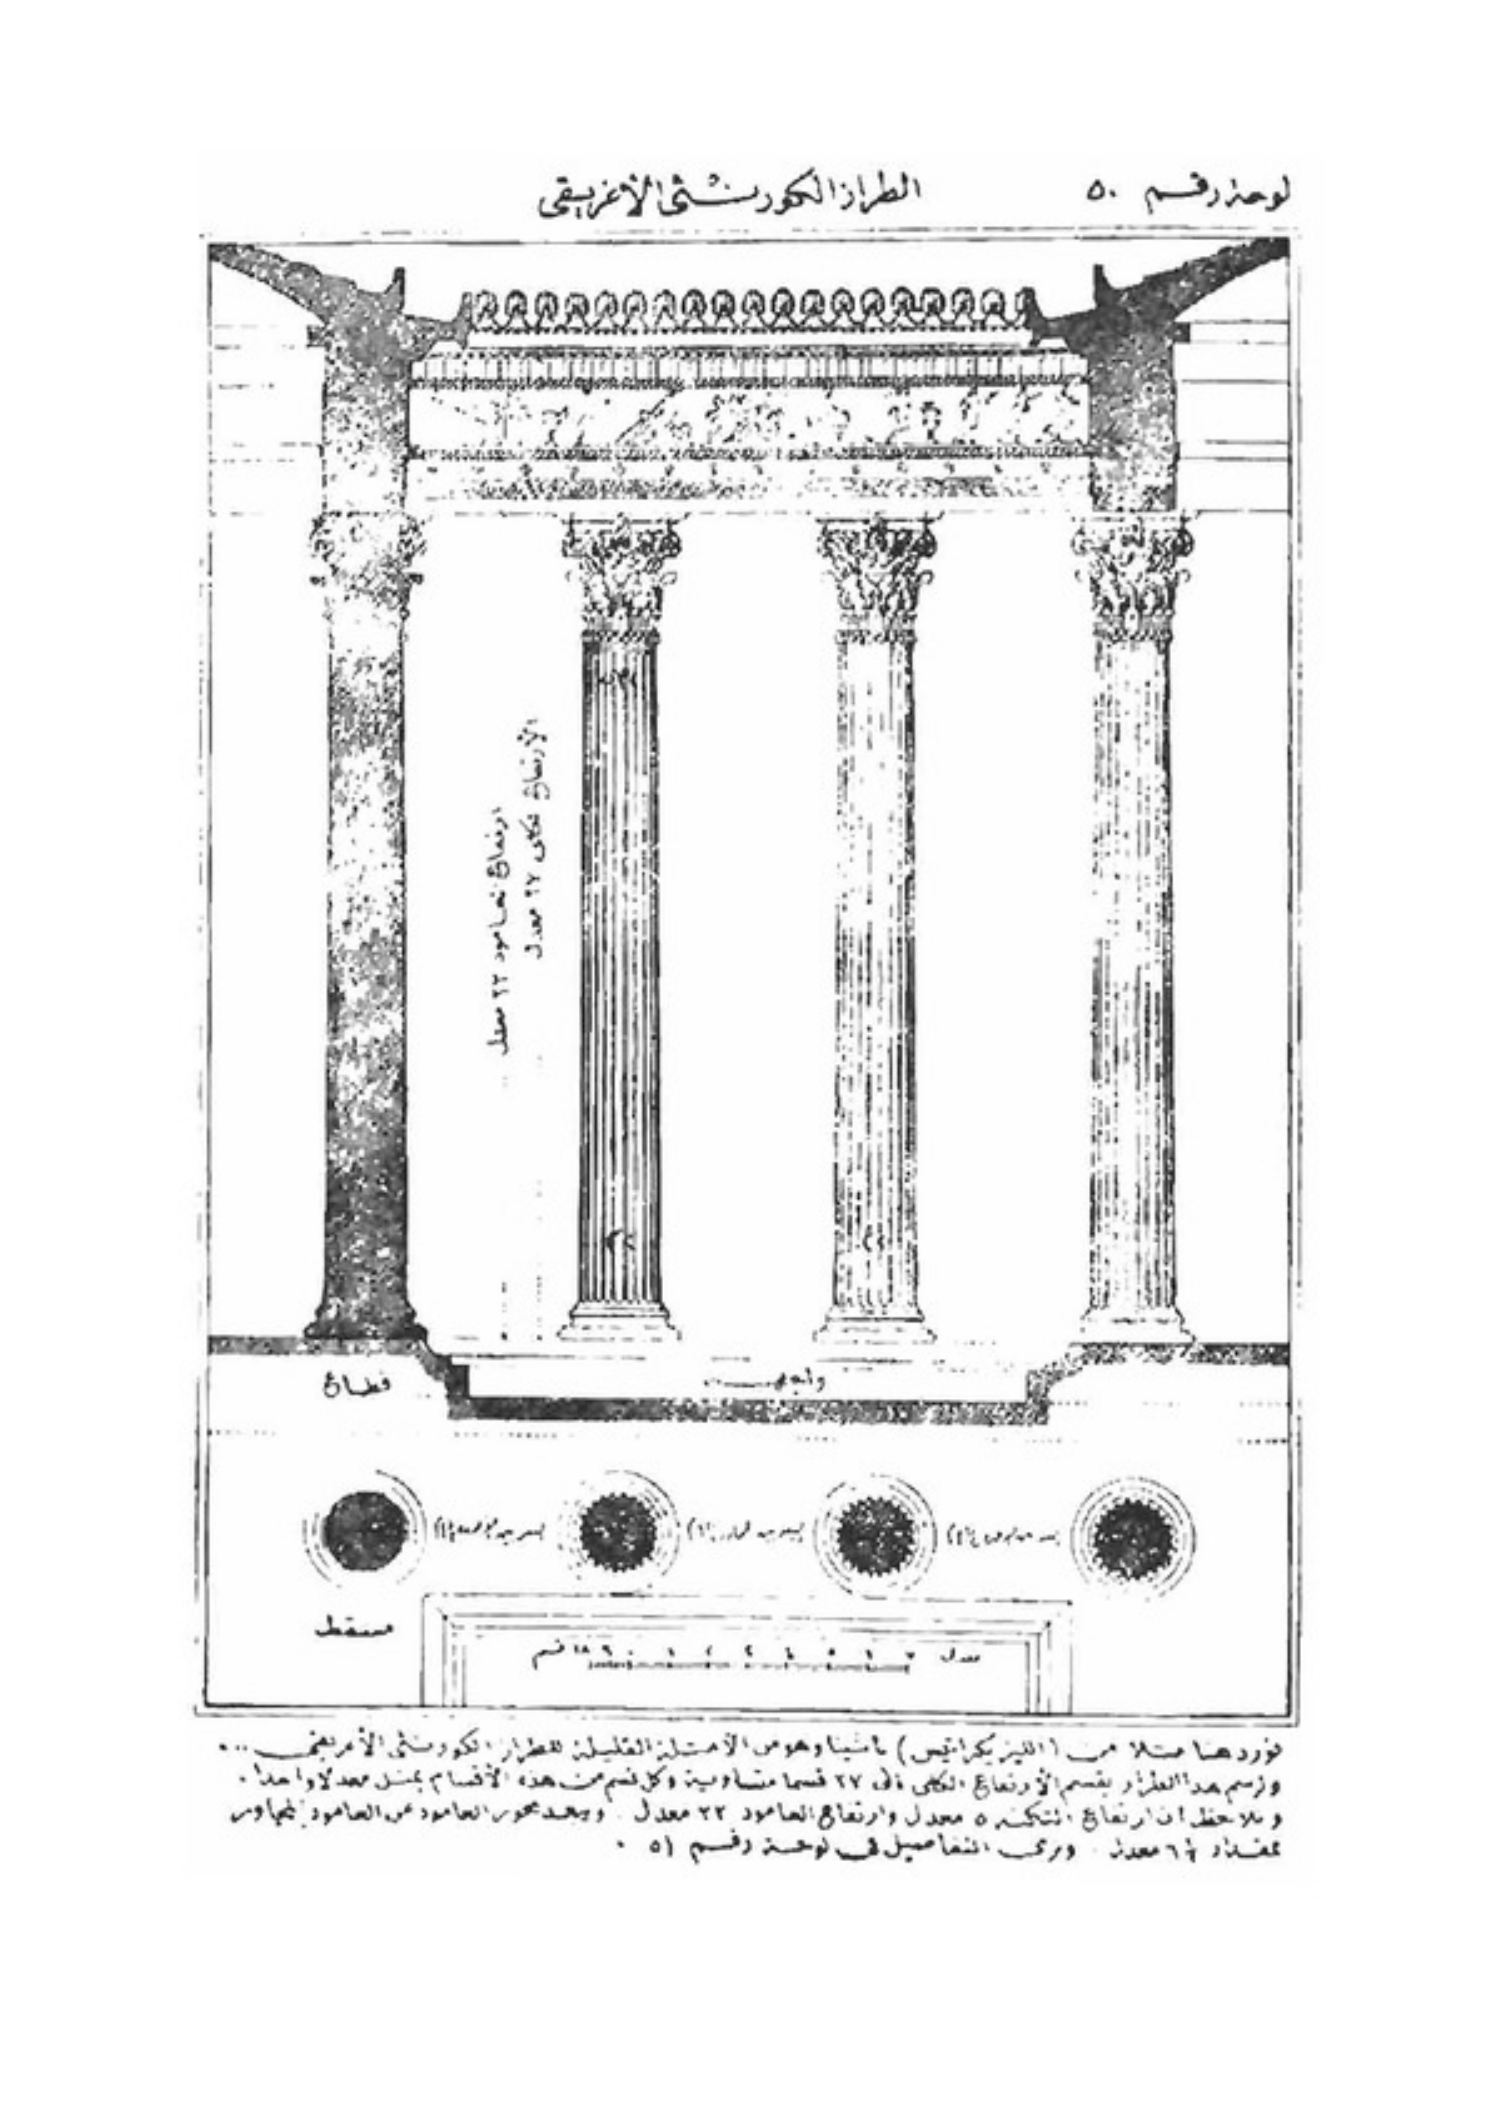 لوحة رقم ٥٠
الطراز الكورنثى الأغريقى
الأرتفاع الكلى ٢٧ معدل
ارتفاع العامود ٢٢ معدل
قطاع
واجهة
مسقط
معدل
١٨ قسم
نورد هنا مثلا من (الليزيكراتيس) بأثينا وهو من الأمثلة القليلة للطراز الكورنثى الأغريقى ...
ونرسم هذا الطراز بقسم الأرتفاع الكلى الى ٢٧ قسما متساوية وكل قسم من هذه الأقسام يمثل معدلا واحدا .
ويلاحظ ان ارتفاع التكنه ٥ معدل وارتفاع العامود ٢٢ معدل . ويبعد محور العامود عن العامود المجاور
بمقدار معدل . وترى التفاصيل فى لوحة رقم ٥١ .